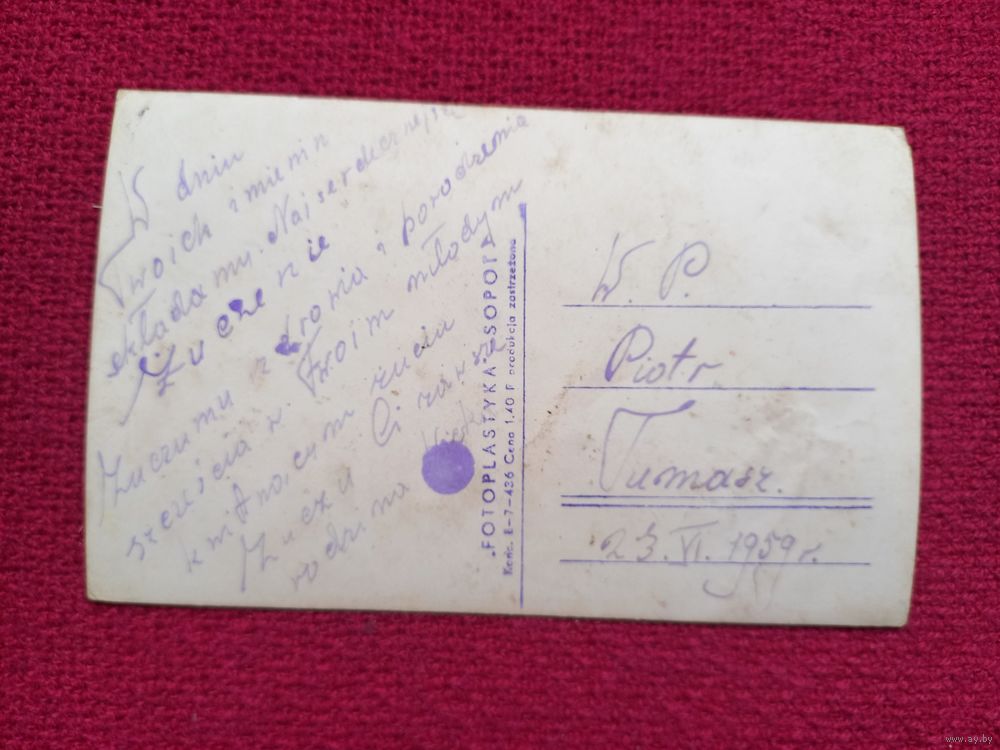 W dniu
Twoich imienin
składamy Najserdeczniejsze
Życzenie
Zyczymy zdrowia i powodzenia
szczęścia w Twoim młodym
kwitnoicym życiu
Zyczy Ci zawsze
rodzina
„FOTOPLASTYKA" SOPOT
Konc. E-7-436 Cena 1.40 P produkcja zastrzeżona
W. P.
Piotr
Tumasz.
23. VI. 1959 r.
www.ay.by